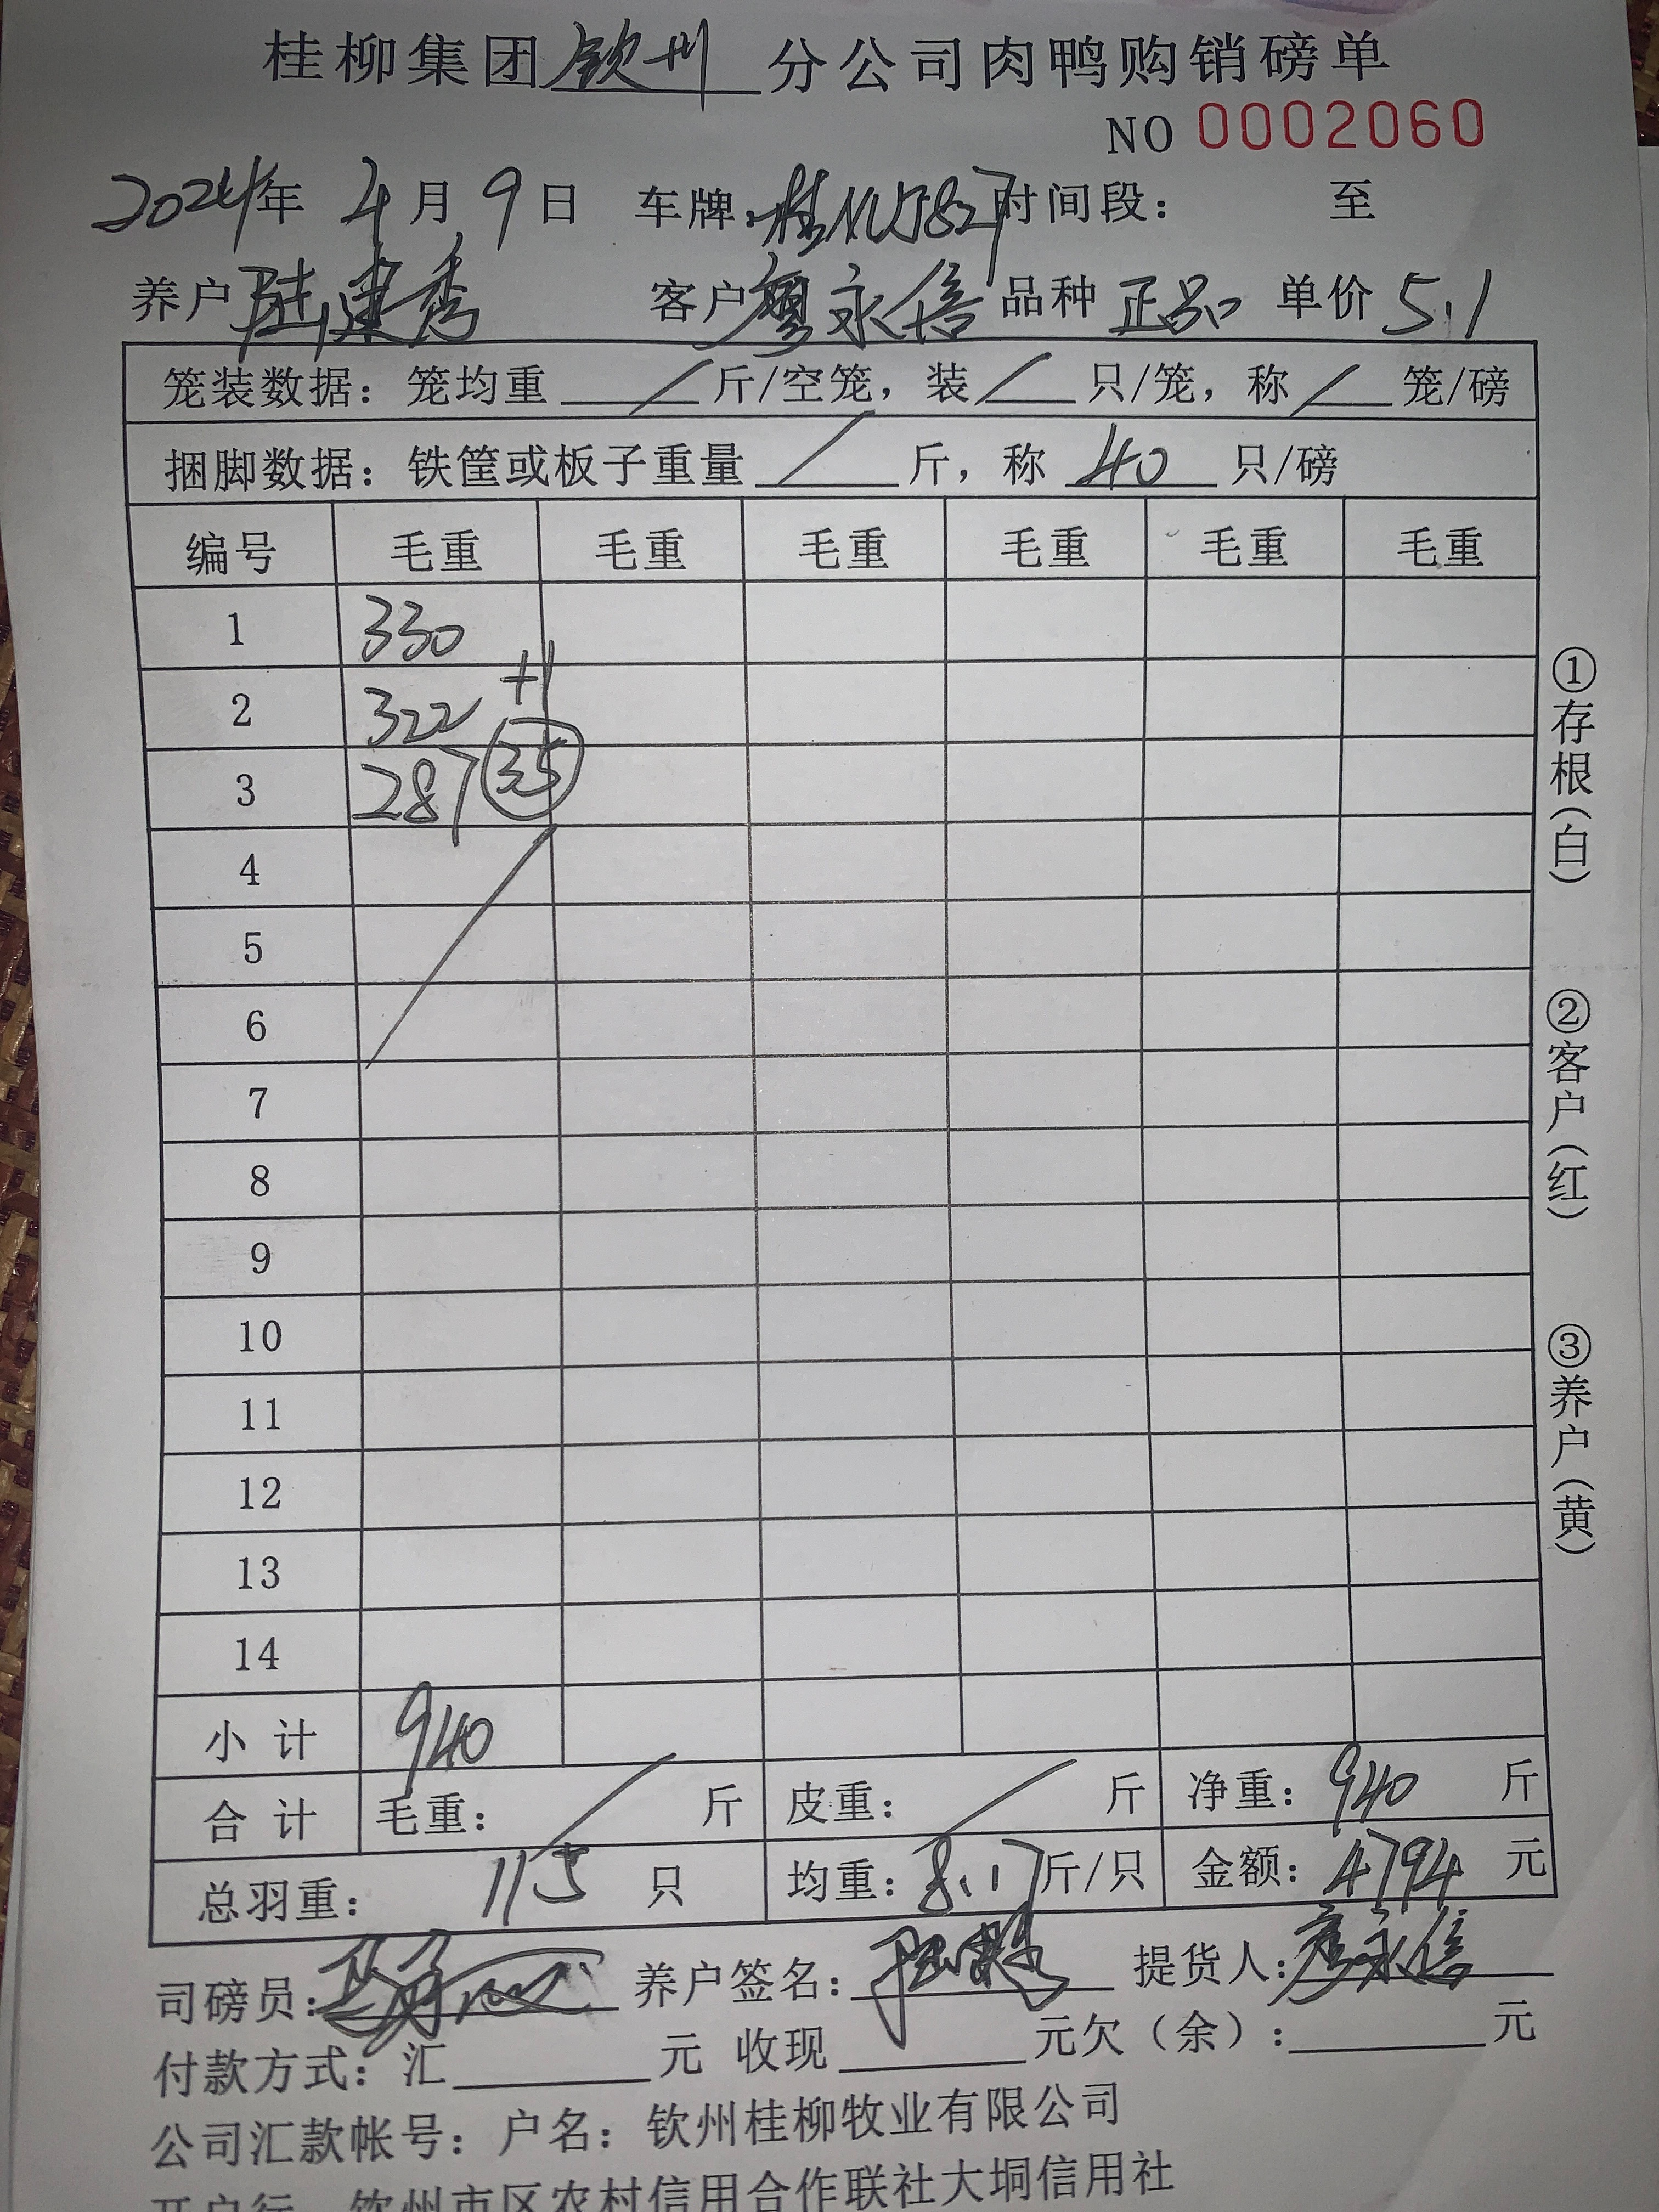 桂柳集团钦州分公司肉鸭购销磅单
NO 0002060
2024年 4月 9日 车牌:桂NU5827 时间段: 至
养户 陆建秀 客户 廖永信 品种 正品 单价 5.1
笼装数据:笼均重 / 斤/空笼,装 / 只/笼,称 / 笼/磅
捆脚数据:铁筐或板子重量 / 斤,称 40 只/磅
编号 毛重 毛重 毛重 毛重 毛重 毛重
1 330
2 322 +1
3 287 35
4
5
6
7
8
9
10
11
12
13
14
小计 940
合计 毛重: / 斤 皮重: / 斤 净重: 940 斤
总羽重: 115 只 均重: 8.17 斤/只 金额: 4794 元
司磅员: 养户签名: 提货人: 廖永信
付款方式:汇 元 收现 元欠(余): 元
公司汇款帐号:户名:钦州桂柳牧业有限公司
开户行 钦州市区农村信用合作联社大垌信用社
①存根(白)
②客户(红)
③养户(黄)